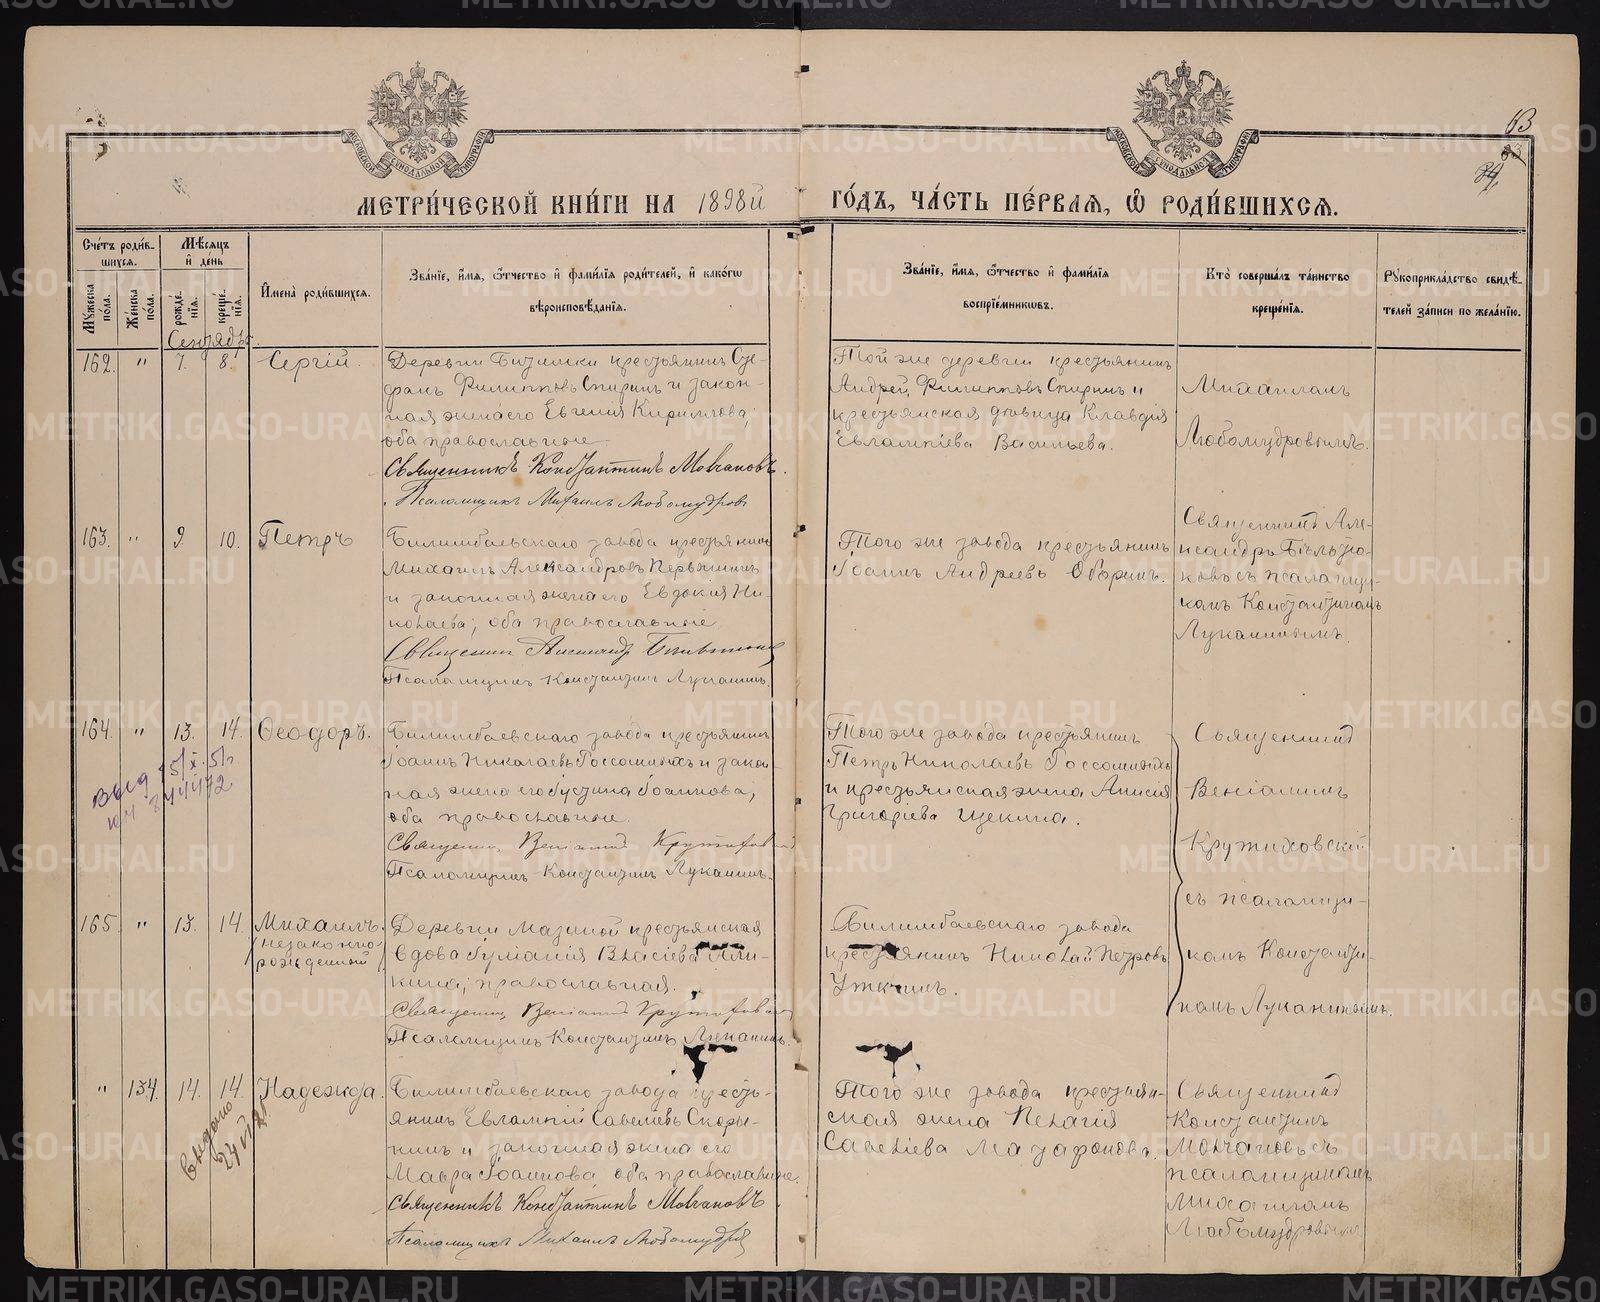 МЕТРИ́ЧЕСКОЙ КНИ́ГИ НА 1898й ГО́ДЪ, ЧА́СТЬ ПЕ́РВАЯ, Ѡ҆ РОДИ́ВШИХСЯ.
63
Сче́тъ роди́в-
шихся.
Мꙋ́жеска по́ла.
Же́нска по́ла.
Мѣ́сяцъ
и҆ де́нь
рожде́-
нїя.
креще́-
нїя.
И҆мена̀ роди́вшихся.
Зва́нїе, и҆́мя, ѻ҆́тчество и҆ фами́лїя роди́телей, и҆ како́гѡ
вѣроисповѣ́данїя.
Зва́нїе, и҆́мя, ѻ҆́тчество и҆ фами́лїя
воспрїе́мникѡвъ.
Кто̀ соверша́лъ та́инство
креще́нїя.
Рꙋкоприкла́дство свидѣ́-
телей за́писи по жела́нїю.
Сентябрь.
162. " 7. 8. Сергій.
Деревни Битимки крестьянинъ Сте-
фанъ Филипповъ Спиринъ и закон-
ная жена его Евгенія Кириллова,
оба православные.
Священникъ Константинъ Молчановъ.
Псаломщикъ Михаилъ Любомудровъ
Той же деревни крестьянинъ
Андрей Филипповъ Спиринъ и
крестьянская дѣвица Клавдія
Евлампіева Васильева.
Михаиломъ
Любомудровымъ.
163. " 9. 10. Петръ
Билимбаевскаго завода крестьянинъ
Михаилъ Александровъ Первушинъ
и законная жена его Евдокія Ни-
колаева, оба православные
Псаломщикъ Константинъ Луканинъ.
Того же завода крестьянинъ
Іоаннъ Андреевъ Оборинъ.
Священникъ Але-
ксандръ
псаломщи-
комъ Константиномъ
Луканинымъ.
164. " 13. 14. Ѳеодоръ.
Билимбаевскаго завода крестьянинъ
Іоаннъ Николаевъ Россомахинъ и закон-
ная жена его Іустина Іоаннова,
оба православные.
Священникъ Веніаминъ Крутиховскій
Псаломщикъ Константинъ Луканинъ.
Того же завода крестьянинъ
Петръ Николаевъ Россомахинъ
и крестьянская жена Анисія
Григоріева Щекина.
Священникъ
Веніаминъ
Крутиховскій
съ псаломщи-
комъ Константи-
номъ Луканинымъ.
165 " 13. 14. Михаилъ.
незаконно-
рожденный
Деревни Мазиной крестьянская
вдова Іуліанія Власіева
кина, православная.
Священникъ Веніаминъ Крутиховскій
Псаломщикъ Константинъ Луканинъ.
Билимбаевскаго завода
крестьянинъ Николай Петровъ
Уткинъ.
" 134. 14. 14. Надежда.
Билимбаевскаго завода кресть-
янинъ Евлампій Савеліевъ Скоры-
нинъ и законная жена его
Мавра Іоаннова, оба православные.
Священникъ Константинъ Молчановъ
Псаломщикъ Михаилъ Любомудровъ
Того же завода крестьян-
ская жена Пелагія
Савеліева
Священникъ
Константинъ
Молчановъ съ
псаломщикомъ
Михаиломъ
Любомудровымъ
METRIKI.GASO-URAL.RU